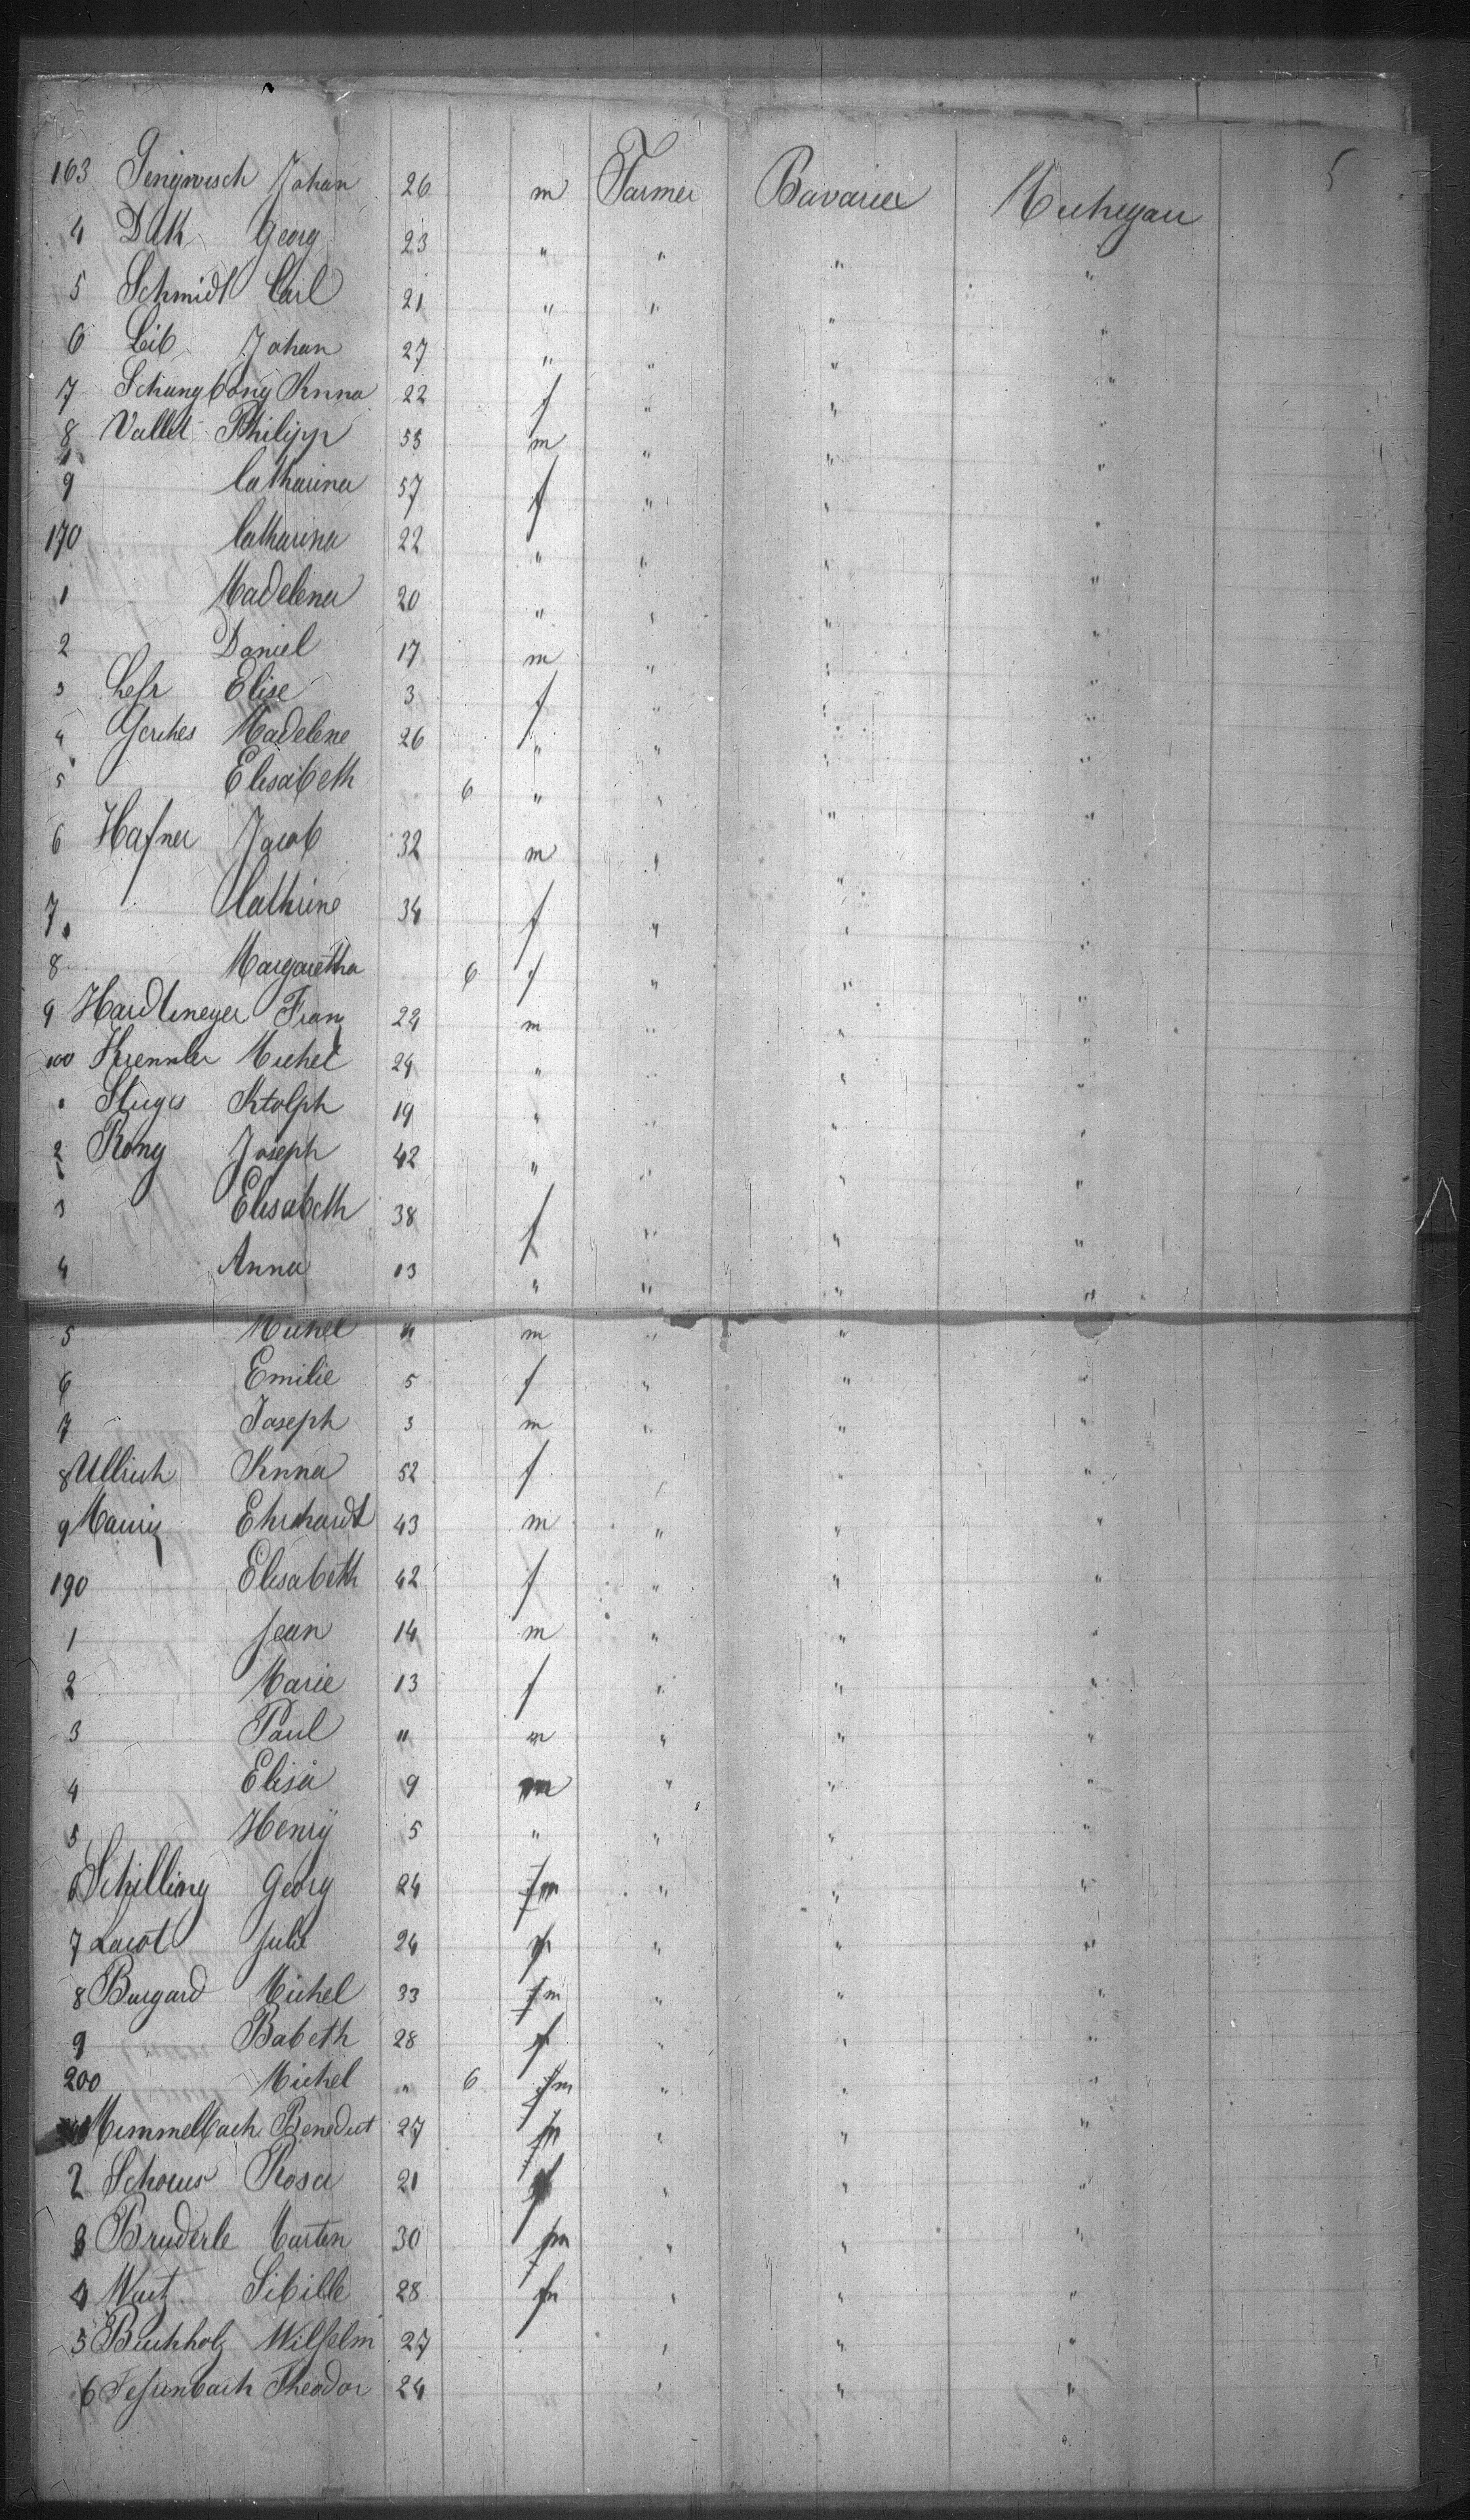 163 Johan 26 m Farmer Bavaria Michigan
4 Georg 23 " " " "
5 Schmidt Carl 21 " " " "
6 Leib Johan 27 " " " "
7 Anna 22 f " " "
8 Vallet Philipp 55 m " " "
9 Catharina 57 f " " "
170 Catharina 22 " " " "
1 Madelena 20 " " " "
2 Daniel 17 m " " "
3 Elise 3 f " " "
4 Madelene 26 " " " "
5 Elisabeth 6 " " " "
6 Hafner Jacob 32 m " " "
7 Cathrine 34 f " " "
8 Margaretha 6 f " " "
9 Hardtmeyer Franz 22 m " " "
Michel 24 " " " "
19 " " " "
2 Rong Joseph 42 " " " "
3 Elisabeth 38 f " " "
4 Anna 13 " " " "
5 Michel 11 m " " "
6 Emilie 5 f " " "
7 Joseph 3 m " " "
8 Ullrich Anna 52 f " " "
9 Ehrhardt 43 m " " "
190 Elisabeth 42 f " " "
1 Jean 14 m " " "
2 Marie 13 f " " "
3 Paul 11 m " " "
4 Elisa 9 m " " "
5 Henry 5 " " " "
6 Schilling Georg 24 m " " "
7 Lacot Julie 24 f " " "
8 Burgard Michel 33 m " " "
9 Babeth 28 f " " "
200 Michel " 6 m " " "
Himmelbach Benedict 27 m " " "
2 Rosa 21 f " " "
3 Bruderle Carten 30 m " " "
4 Sibille 28 " " "
5 Buchholz Wilhelm 27 " " "
6 Theodor 24 " " "